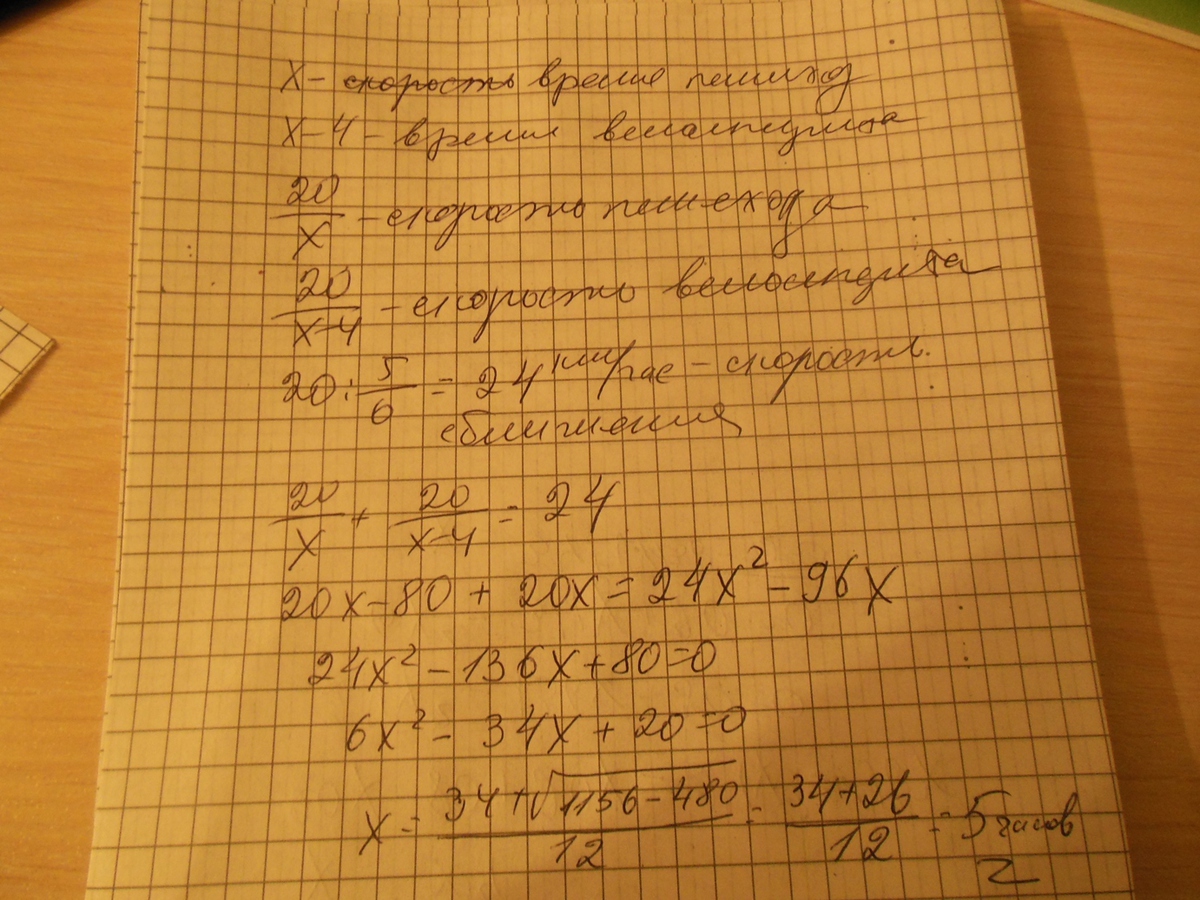 X – скорость время пешеход
X-4 – время велосипедиста
20/X – скорость пешехода
20/X-4 – скорость велосипедиста
20 : 5/6 = 24 км/час – скорость.
сближения
20/X + 20/X-4 = 24
20X-80 + 20X = 24X² - 96X
24X² - 136X + 80 = 0
6X² - 34X + 20 = 0
X = 34+√1156-480/12 = 34+26/12 = 5 часов